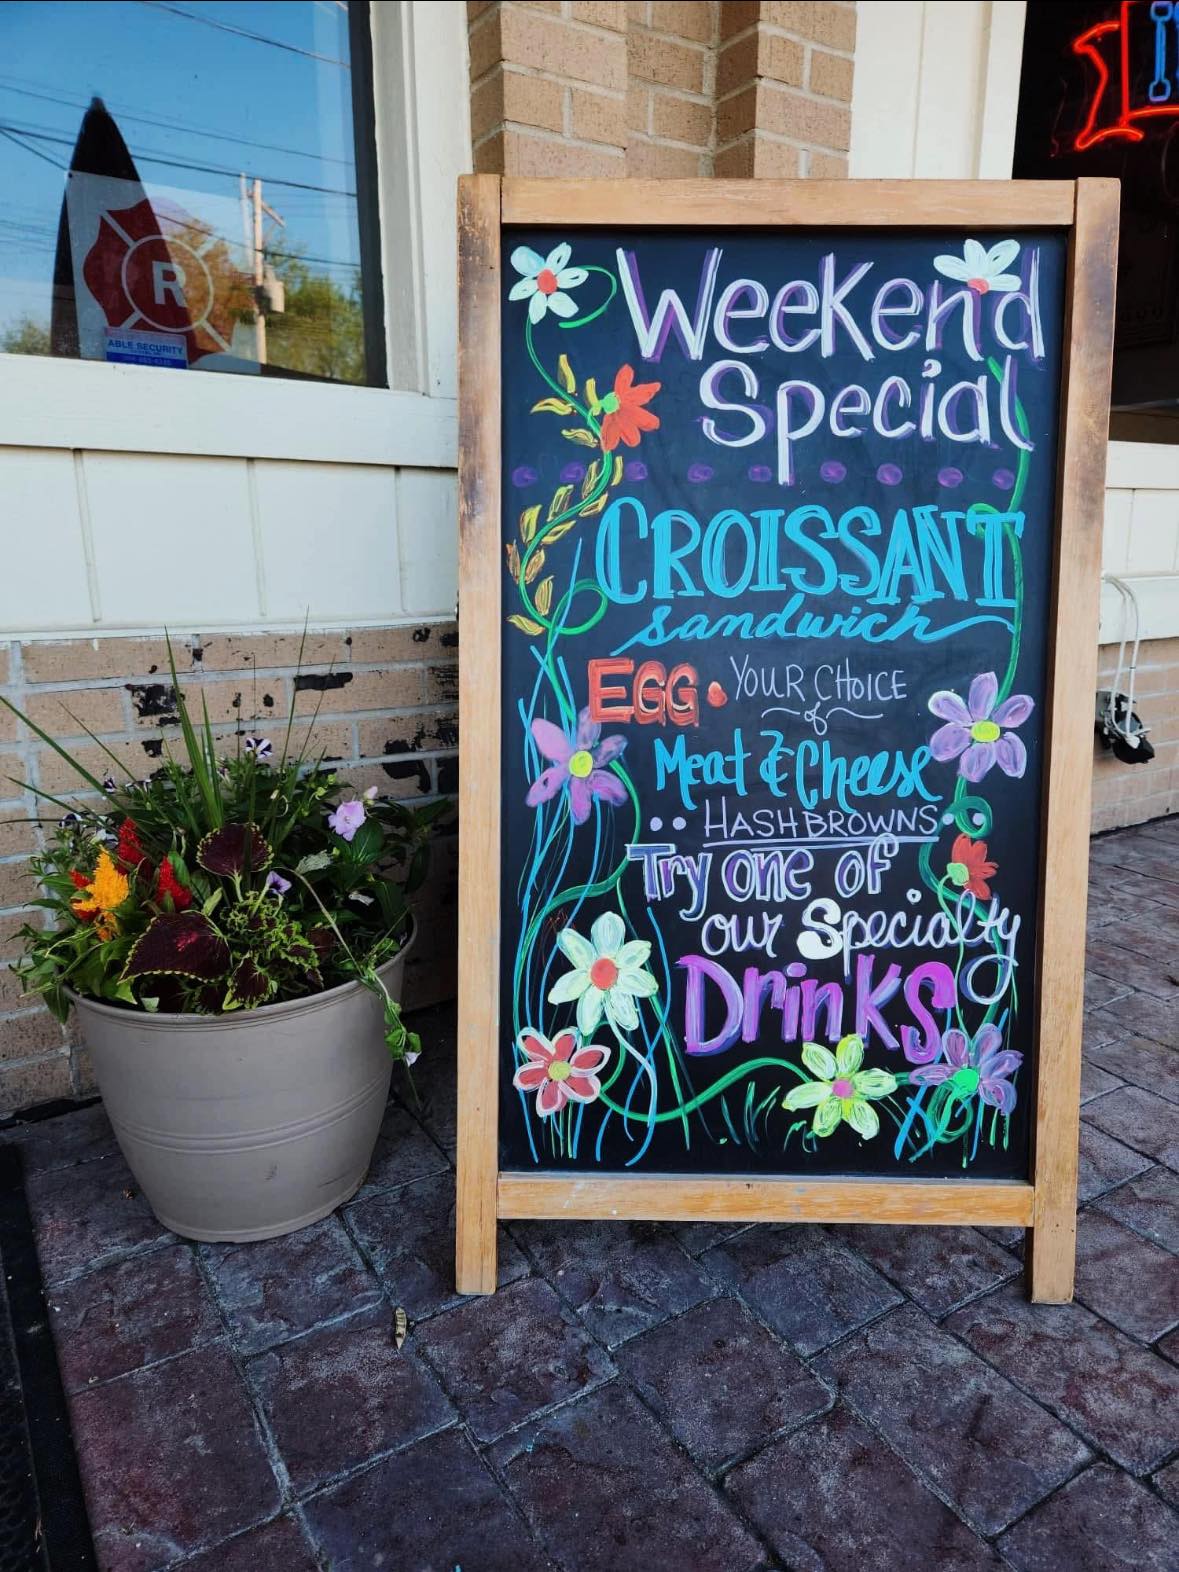 R
ABLE SECURITY
Weekend
Special
CROISSANT
sandwich
EGG • YOUR CHOICE
of
Meat & Cheese
•• HASHBROWNS ••
Try one of
our Specialty
Drinks